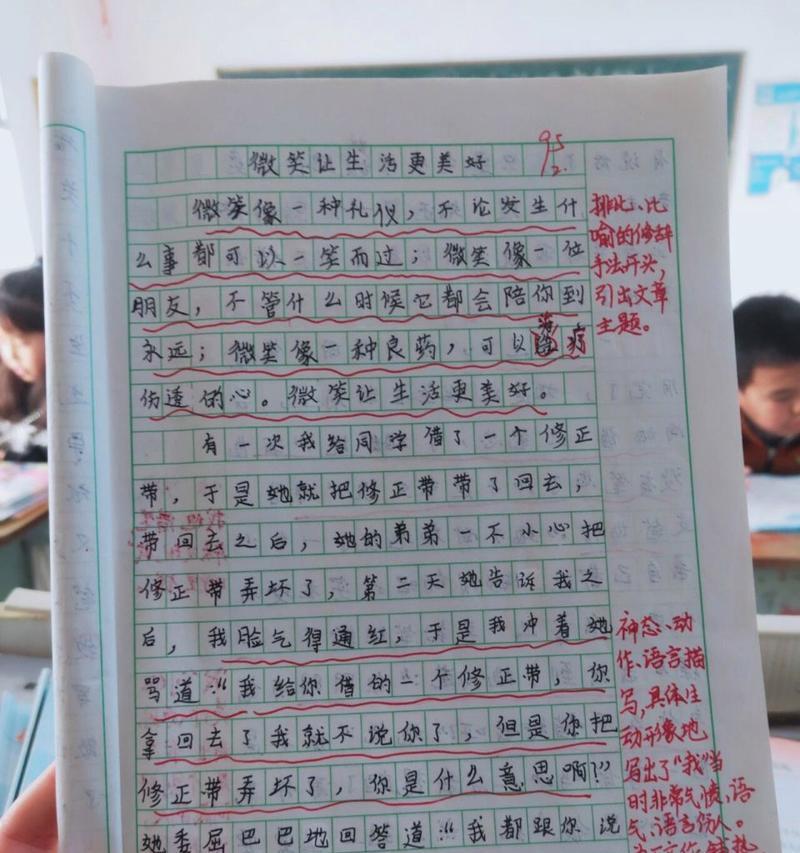 微笑让生活更美好
95
2.
微笑像一种礼仪，不论发生什
么事都可以一笑而过；微笑像一位
朋友，不管什么时候它都会陪你到
永远；微笑像一种良药，可以治疗
伤透的心。微笑让生活更美好。
有一次我给同学借了一个修正
带，于是她就把修正带带了回去，
带回去之后，她的弟弟一不小心把
修正带弄坏了，第二天她告诉我之
后，我脸气得通红，于是我冲着她
骂道：“我给你借的一个修正带，你
拿回去了我就不说你了，但是你把
修正带弄坏了，你是什么意思啊？”
她委屈巴巴地回答道：“我都跟你说
排比、比
喻的修辞
手法开头，
引出文章
主题。
神态、动
作、语言描
写，具体生
动形象地
写出了“我”当
时非常气愤，语
气、语言伤人。